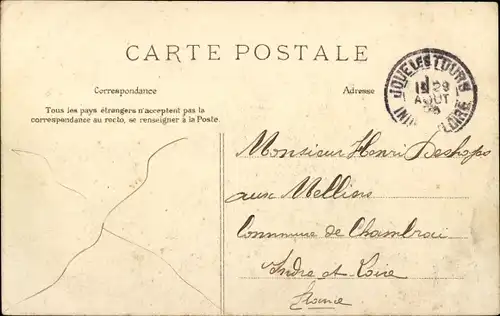 CARTE POSTALE
Correspondance
Adresse
Tous les pays étrangers n'acceptent pas la
correspondance au recto, se renseigner à la Poste.
JOUE LES TOURS
29
AOUT
LOIRE
Monsieur Henri Deshops
aux Melliers
Commune de Chambrai
Indre et Loire
France